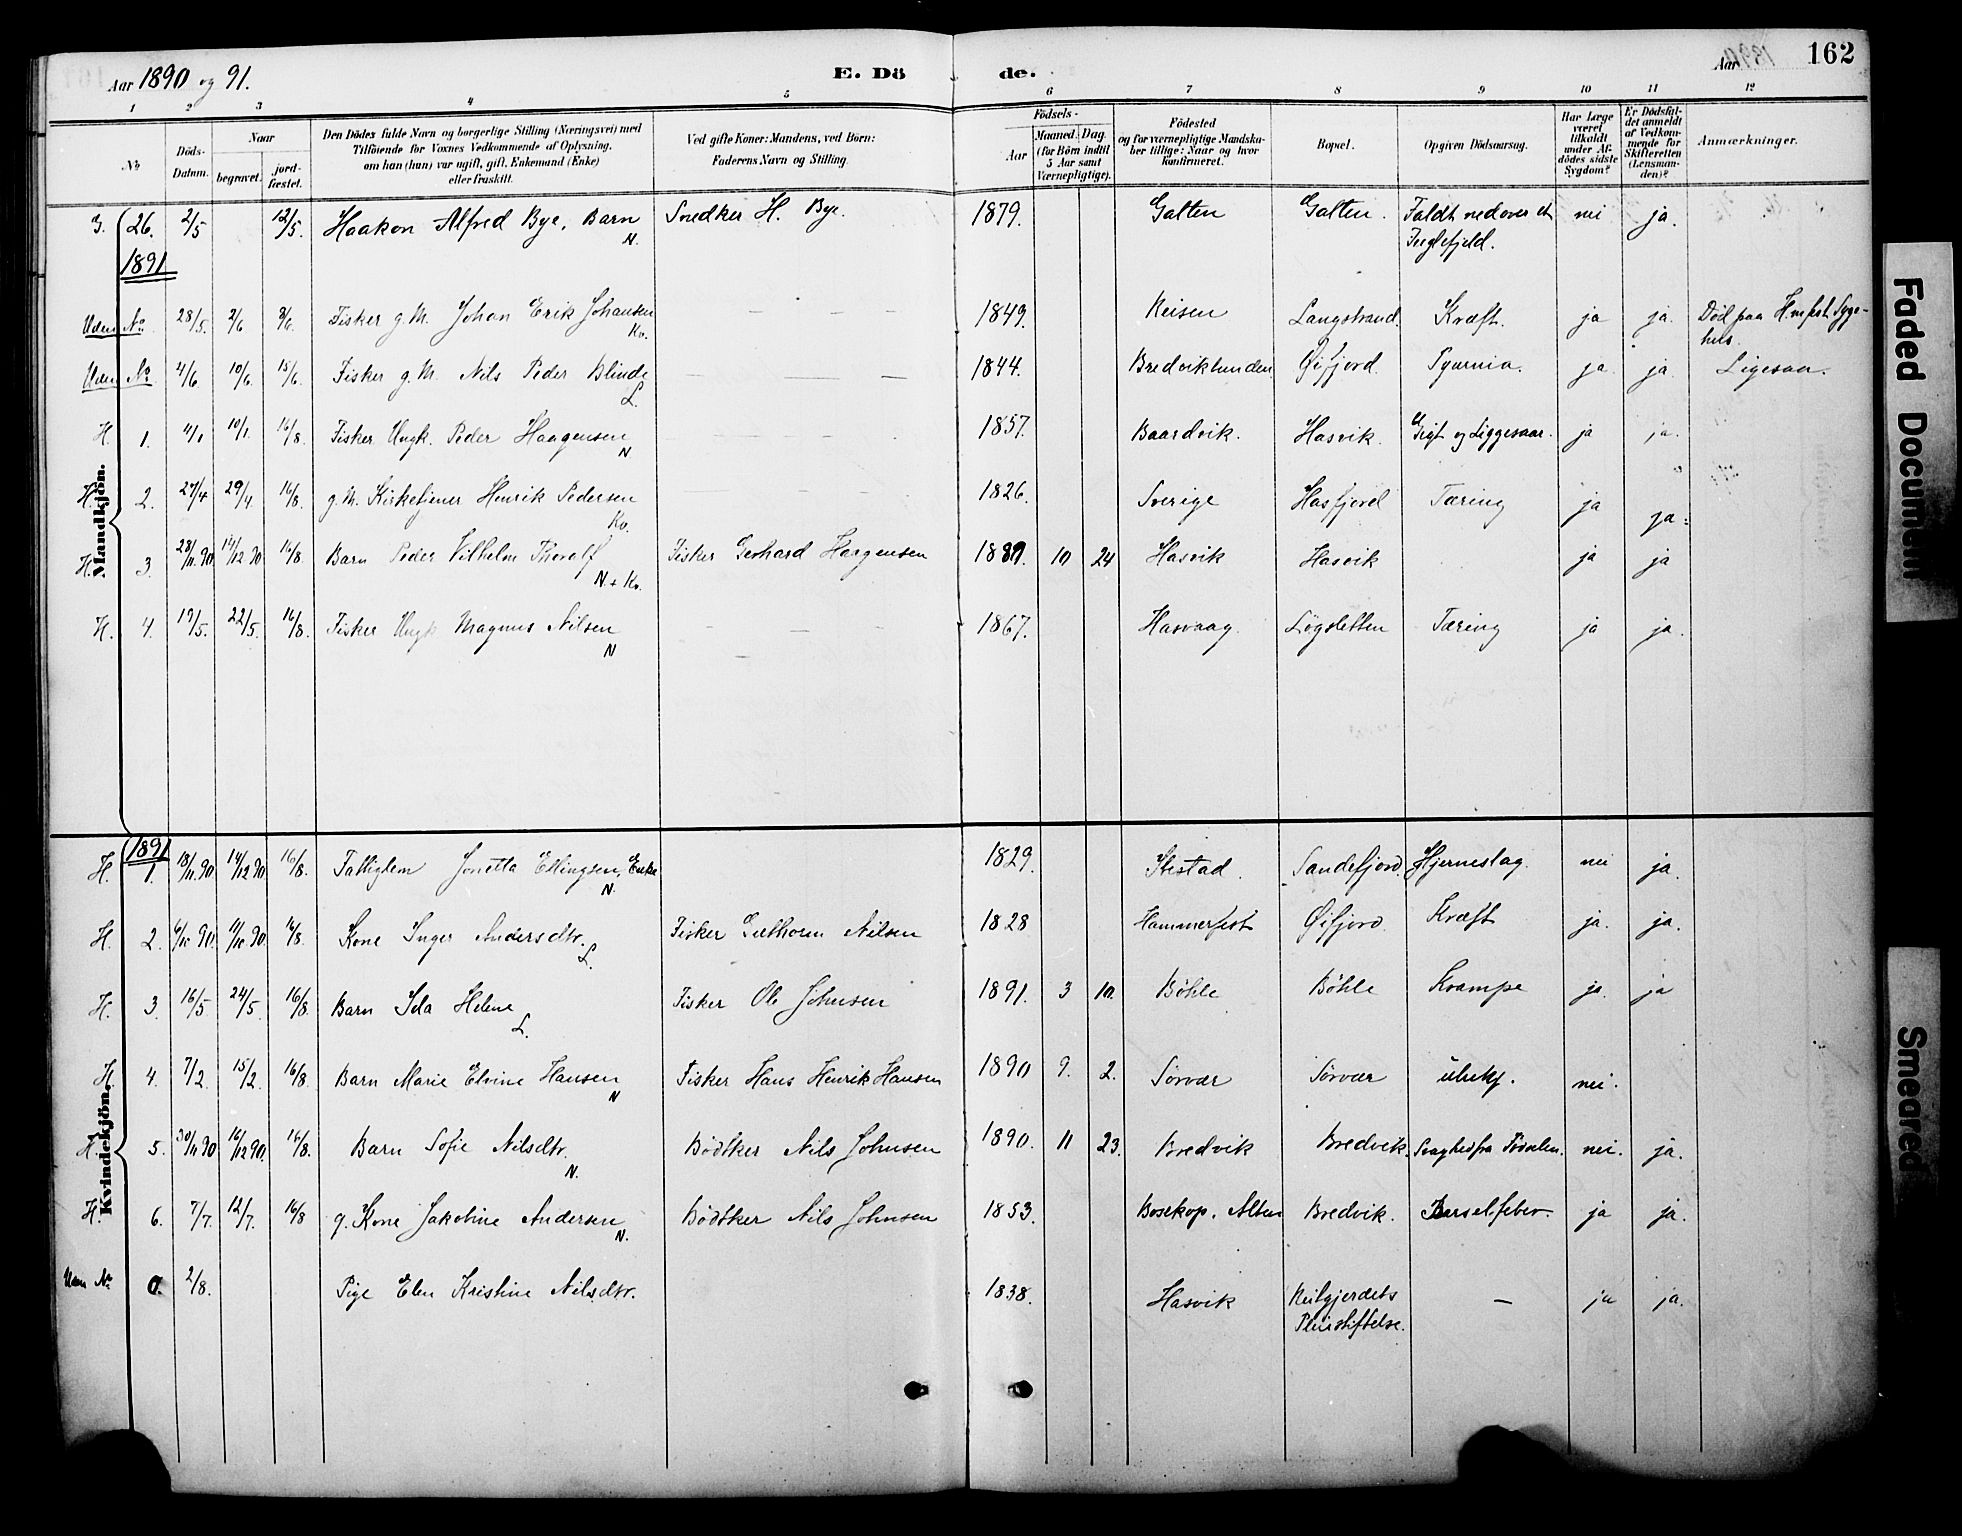 Aar 1890 og 91. E. Dö de. Aar 162
1 2 3 4 5 6 7 8 9 10 11 12
No. Döds-Datum. Naar begravet. jordfæstet. Den Dödes fulde Navn og borgerlige Stilling (Næringsvei) med Tilföiende for Voxnes Vedkommende af Oplysning, om han (hun) var ugift, gift, Enkemand (Enke) eller fraskilt. Ved gifte Koner: Mandens, ved Börn: Faderens Navn og Stilling. Födsels- Aar Maaned. Dag. (for Börn indtil 5 Aar samt Værnepligtige). Födested og for værnepligtige Mandskaber tillige: Naar og hvor konfirmeret. Bopæl. Opgiven Dödsaarsag. Har Læge været tilkaldt under Afdödes sidste Sygdom? Er Dödsfaldet anmeldt af Vedkommende for Skifteretten (Lensmanden)? Anmærkninger.
Mandkjön.
G. 26. 2/5 12/5. Haakon Alfred Bye, Barn N. Snedker H. Bye. 1879. Galten Galten. Faldt ned over et Fuglefjeld. nei ja.
1891
Uden No. 28/5. 2/6 Fisker g. M. Johan Erik Johansen Kv. — — — 1849. Reisen Langstrand. Kræft. ja ja. Død paa Hmfest. Sygehus.
Uden No 4/6 10/6. 15/6. Fisker g. M. Nils Peder Blinde L. — — — 1844. Bredvikbunden. Øifjord. Pyæmia. ja ja. Ligesaa.
H. 1. 4/1 10/1. 16/8. Fisker Ungk. Peder Haagensen N — — — 1857. Baardvik. Hasvik. Gigt og Liggesaar. ja ja.
H. 2. 27/4 29/4. 16/8. g. M. Kirketjener Henrik Pedersen Kv. — — — 1826. Sverige Hasfjord Tæring ja ja.
H. 3. 28/11.90 14/12 90 16/8. Barn Peder Vilhelm Thoralf N. + Kv. Fisker Gerhard Haagensen 10 24 Hasvik Hasvik ja ja
H. 4. 19/5. 22/5. 16/8. Fisker Ungk Magnus Nilsen N — — — 1867. Hasvaag. Løgsletten Tæring ja ja.
Kvindekjön.
1891
H. 1. 18/11.90 14/12 90 16/8. Fattiglem Jonetta Ellingsen, Enke N. 1829. Ibestad. Sandefjord. Hjerneslag. nei ja.
H. 2. 6/10 90. 11/10 90. 16/8. Kone Inger Andersdtr. L. Fisker Guthorm Nilsen 1828 Hammerfest Øifjord. Kræft ja. ja.
H. 3. 16/5 24/5. 16/8 Barn Ida Helene L. Fisker Ole Johnsen 1891. 3 10. Bøhle Bøhle Krampe ja. ja
H. 4. 7/2. 15/2. 16/8. Barn Marie Elvine Hansen N Fisker Hans Henrik Hansen 1890 9. 2. Sørvær Sørvær ubekj. nei.
H. 5. 30/11 90 16/12 90. 16/8. Barn Sofie Nilsdtr. N. Bødtker Nils Johnsen 1890. 11 23. Bredvik Bredvik. Svaghed fra Fødselen. nei. ja.
H. 6. 7/7. 12/7. 16/8 g. Kone Jakobine Andersen N. Bødtker Nils Johnsen 1853. Bosekop. Alten Bredvik. Barselfeber. ja ja.
Uden No 0. 2/8. Pige Elen Kristine Nilsdtr. 1838. Hasvik Reitgjerdets Pleiestiftelse. — ja ja.
Faded Document
Smeared